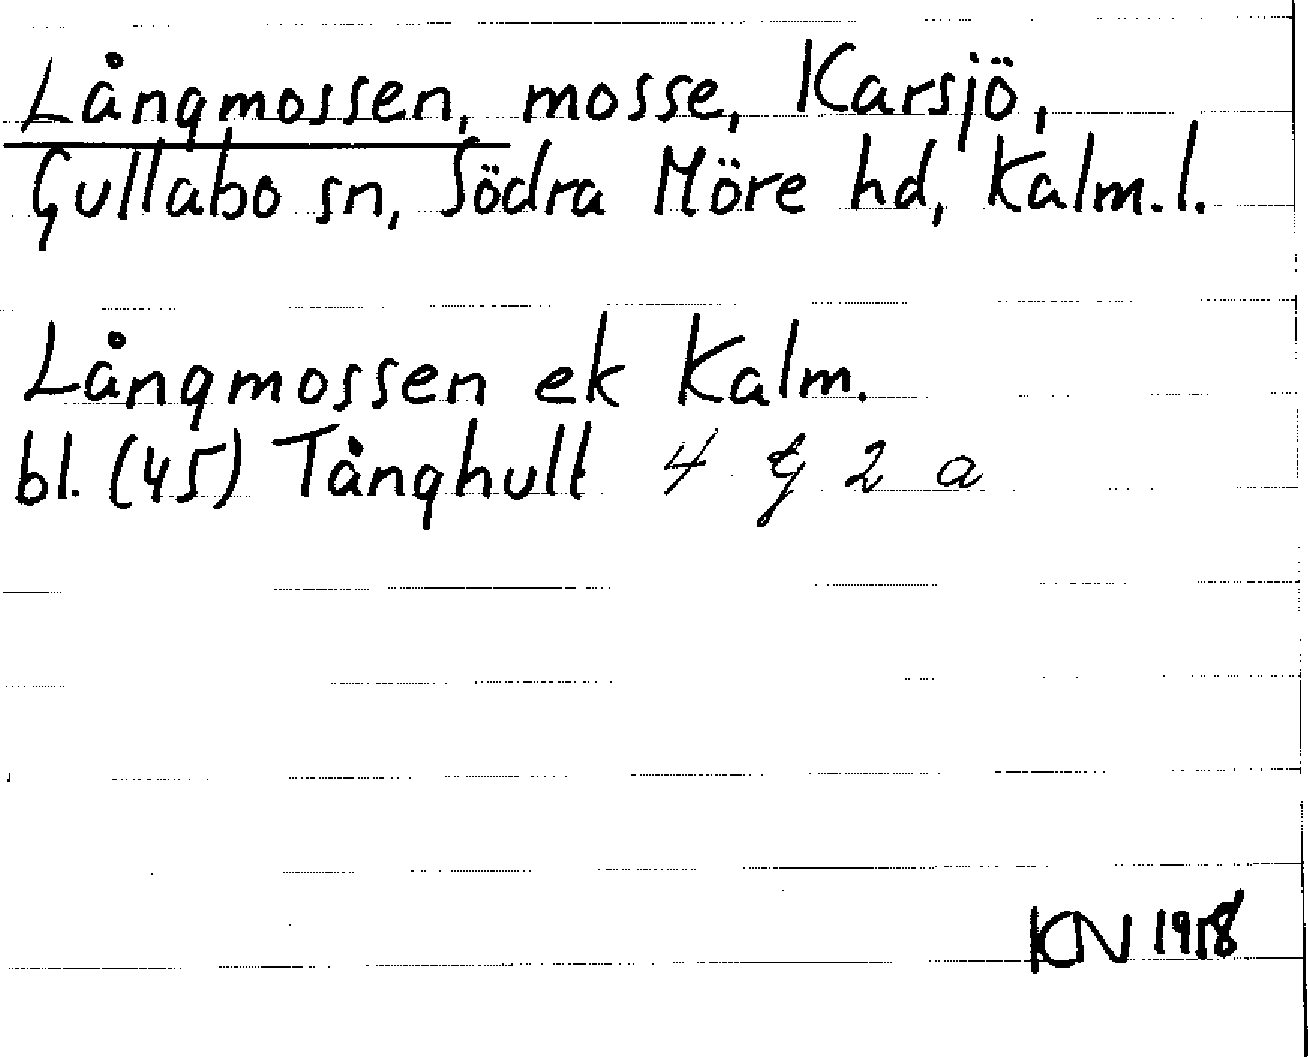 Långmossen, mosse, Karsjö,
Gullabo sn, Södra Möre hd, Kalm. l.
Långmossen ek Kalm.
bl. (45) Tånghult 4 g 2 a
KN 1918